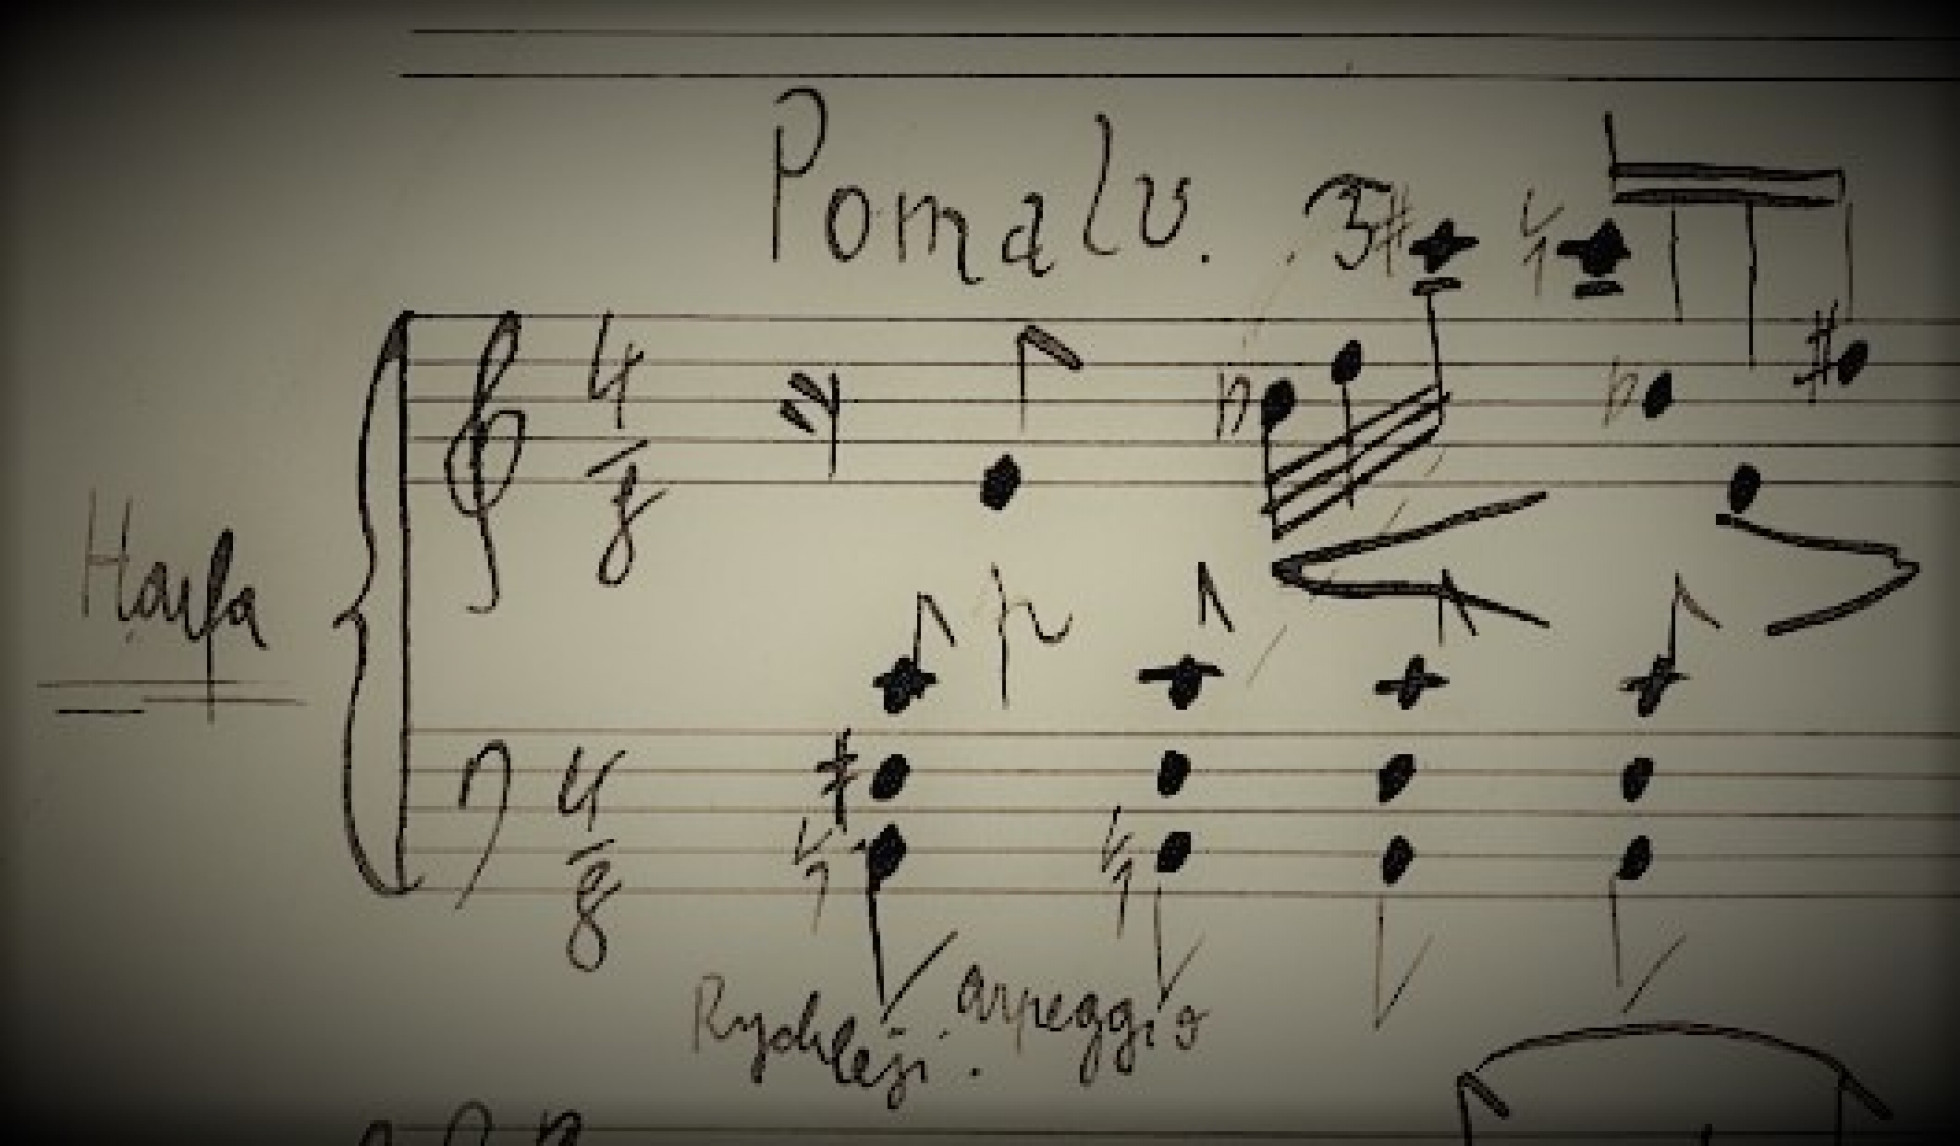 Pomalu.
3
4
8
Harfa
4
8
Rychleji. arpeggio